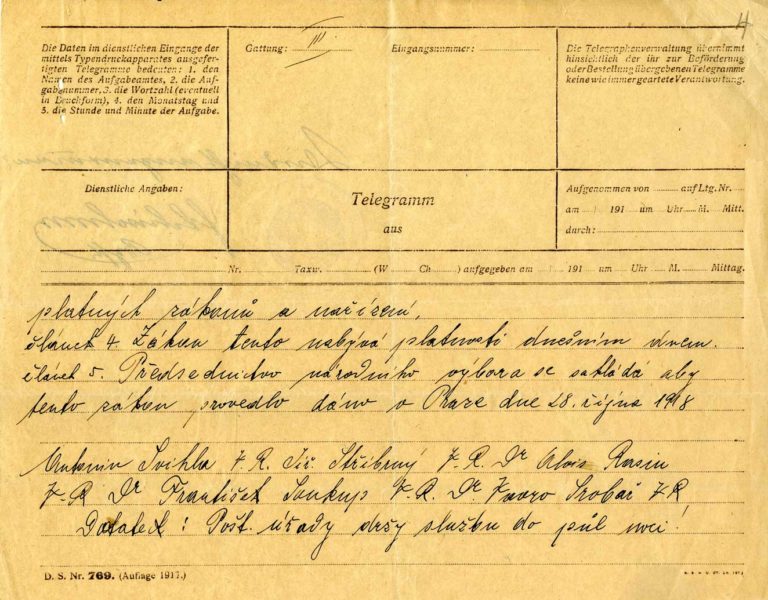 4
Die Daten im dienstlichen Eingange der
mittels Typendruckapparates ausgefer-
tigten Telegramme bedeuten: 1. den
Namen des Aufgabeamtes, 2. die Auf-
gabenummer, 3. die Wortzahl (eventuell
in Bruchform), 4. den Monatstag und
5. die Stunde und Minute der Aufgabe.
Gattung: III.
Eingangsnummer:
Die Telegraphenverwaltung übernimmt
hinsichtlich der ihr zur Beförderung
oder Bestellung übergebenen Telegramme
keine wie immer geartete Verantwortung.
Dienstliche Angaben:
Telegramm
aus
Aufgenommen von auf Ltg. Nr.
am 191 um Uhr M. Mitt.
durch:
Nr. Taxw. (W Ch ) aufgegeben am 191 um Uhr M. Mittag.
platných zákonů a nařízení,
článek 4. Zákon tento nabývá platnosti dnešním dnem.
článek 5. Předsednictvo národního výbora se ukládá aby
tento zákon provedlo dáno v Praze dne 28. října 1918
Antonin Svihla V.R. Jiř. Stříbrný V.R. Dr Alois Rasin
V.R Dr František Soukup V.R. Dr Vavro Srobař V.R.
Dodatek: Pošt. úřady držy službu do půl noci!
D. S. Nr. 769. (Auflage 1917.)